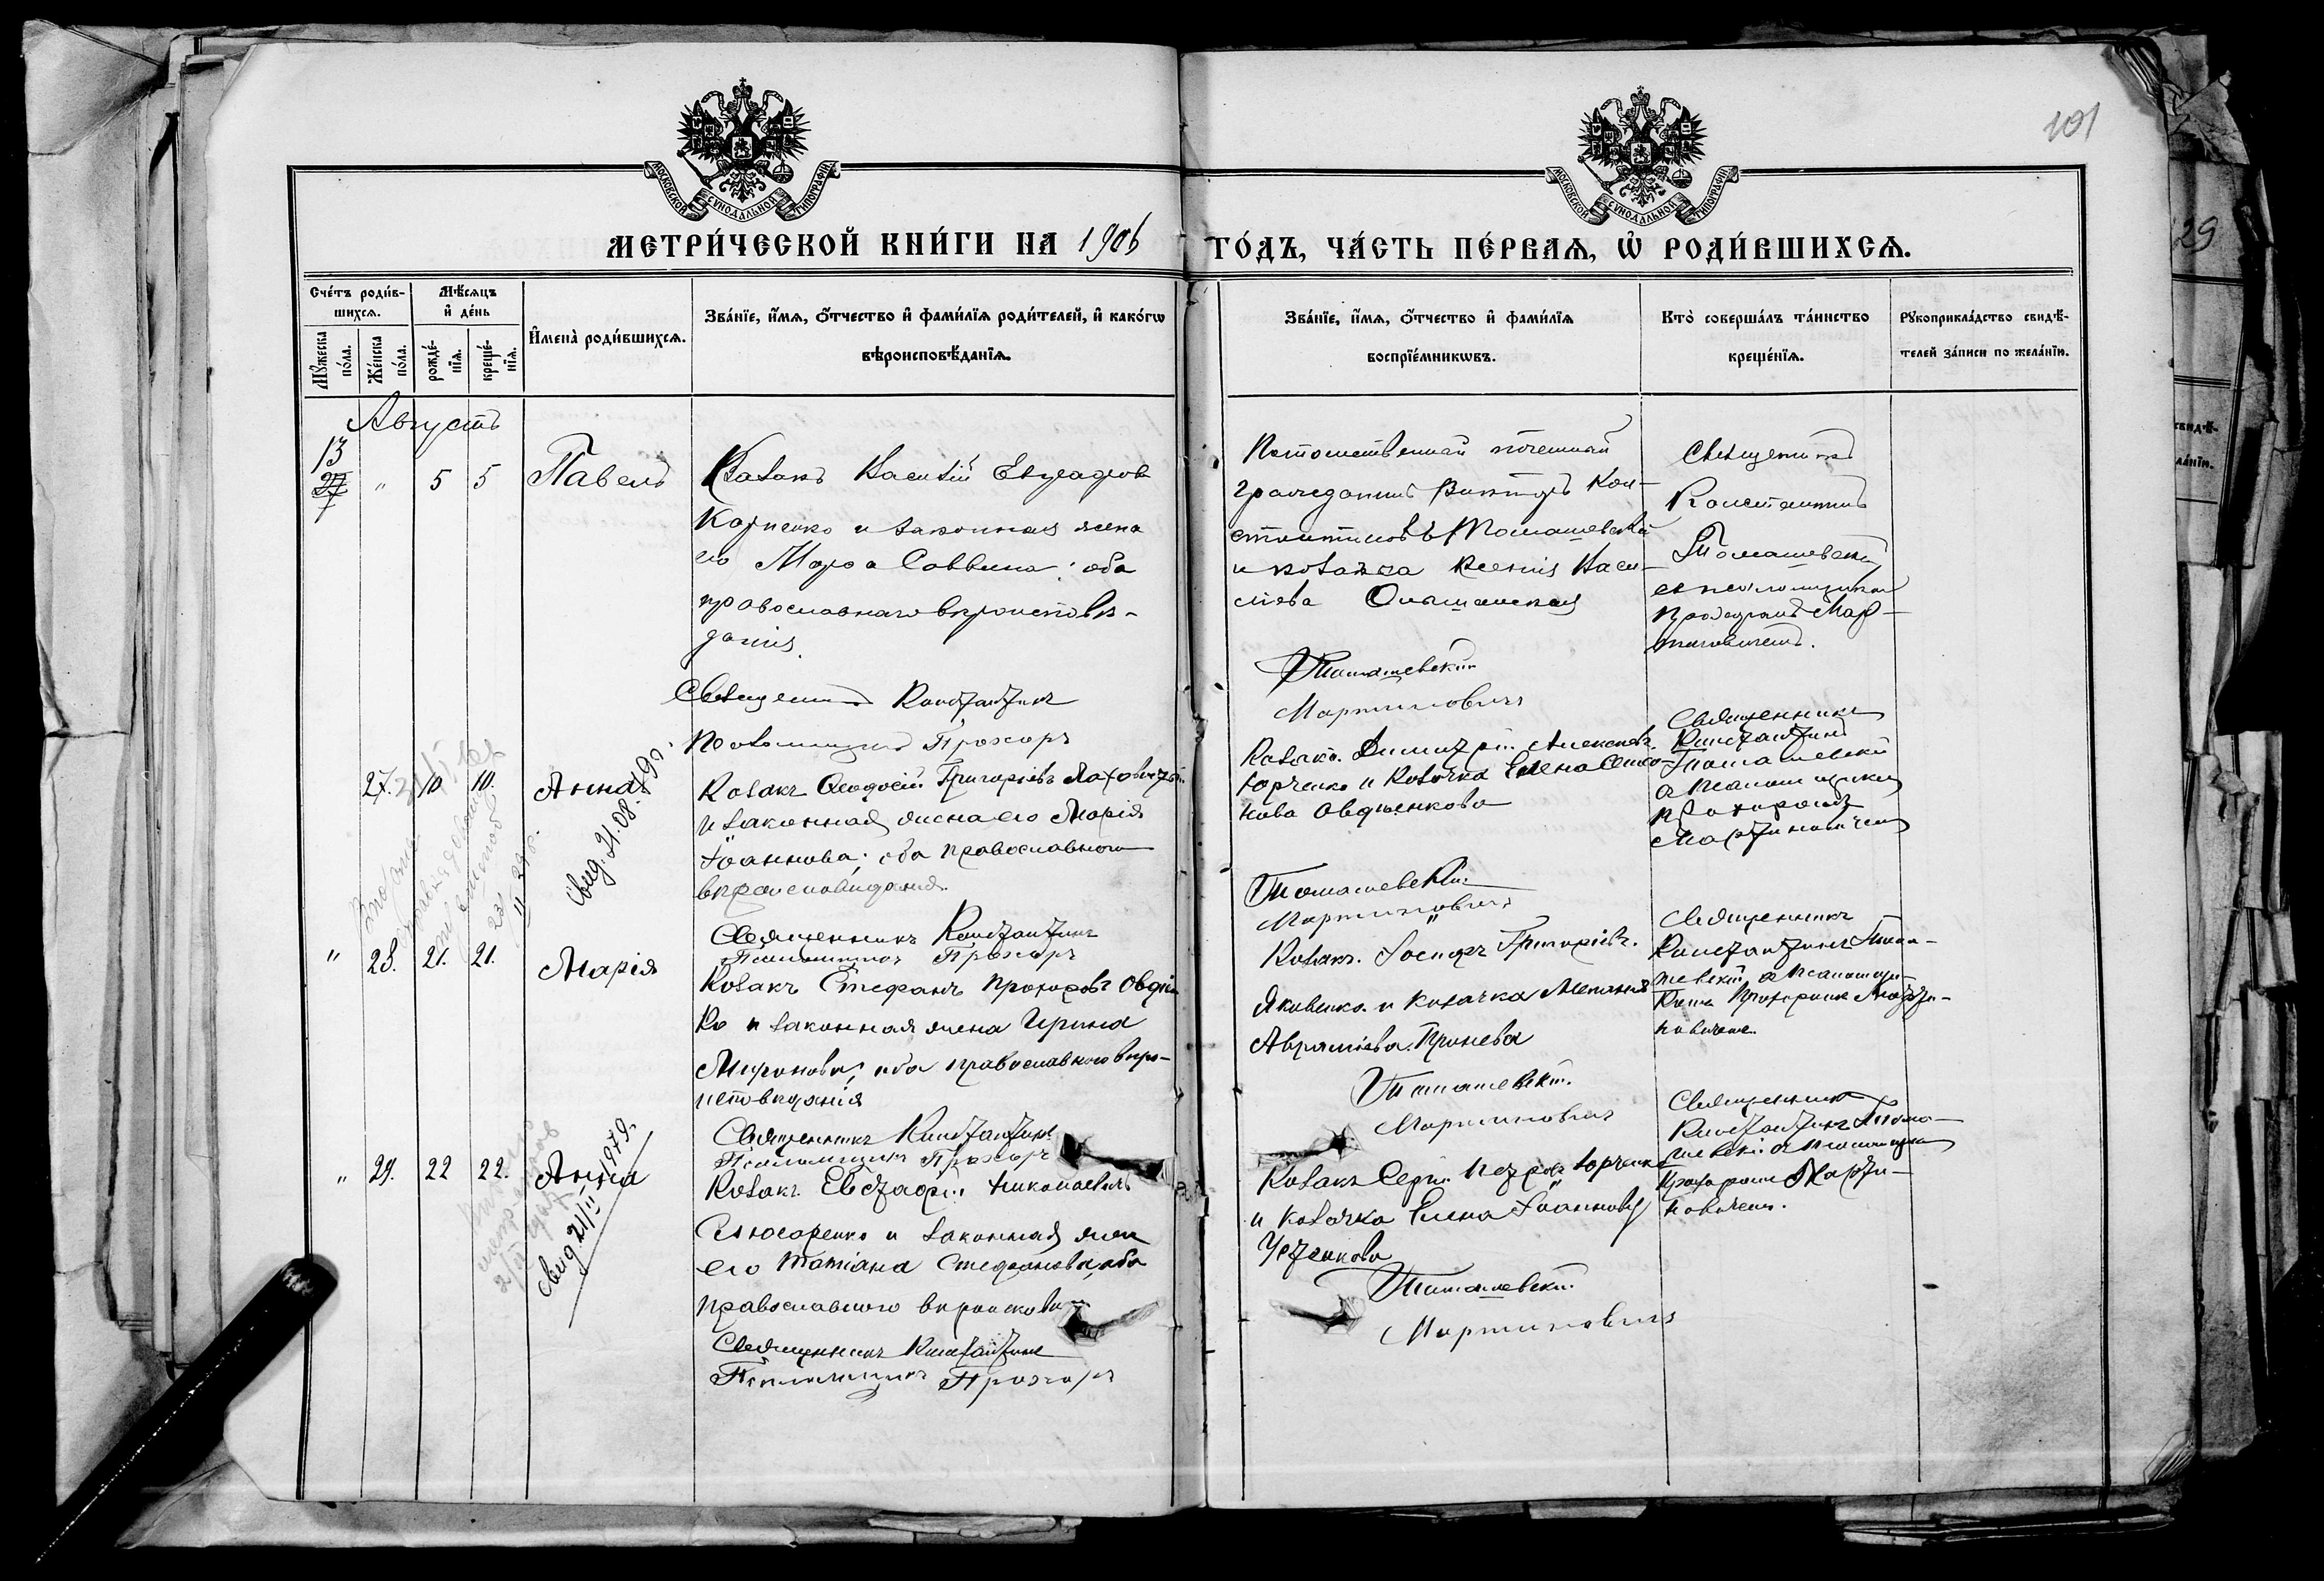 101
МОСКОВСКОЙ СУНОДАЛЬНОЙ ТИПОГРАФІИ
МОСКОВСКОЙ СУНОДАЛЬНОЙ ТИПОГРАФІИ
МЕТРИ́ЧЕСКОЙ КНИ́ГИ НА 1906
ГО́ДЪ, ЧА́СТЬ ПЕ́РВАѦ, Ѡ҆ РОДИ́ВШИХСѦ.
Сче́тъ роди́в-
шихсѧ.
Мꙋ́жеска по́ла.
Же́нска по́ла.
Мѣ́сѧцъ и҆ де́нь
рожде́-нїѧ.
креще́-нїѧ.
И҆мена̀ роди́вшихсѧ.
Зва́нїе, и҆́мѧ, ѻ҆́тчество и҆ фами́лїѧ роди́телей, и҆ како́гѡ
вѣроисповѣ́данїѧ.
Зва́нїе, и҆́мѧ, ѻ҆́тчество и҆ фами́лїѧ
воспрїе́мникѡвъ.
Кто̀ соверша́лъ та́инство
креще́нїѧ.
Рꙋкоприкла́дство свидѣ́-
телей за́писи по жела́нїю.
Августъ
13
27
" 5 5 Павелъ
Козакъ Василій Евграфов
Карпенко и законная жена
его Марфа Саввина: оба
православнаго вѣроисповѣ-
данія.
Священникъ Константинъ
Псаломщикъ Прохоръ
Потомственный почетный
гражданинъ Викторъ Кон-
стантиновъ Томашевскій
и козачка Ксенія Васи-
ліева Ольшанская
Томашевскій
Мартиновичъ
Священникъ
Константинъ
Томашевскій
съ псаломщикомъ
Прохоромъ Мар-
тиновичемъ.
27. 10 10. Анна
Свид. 21.08.
Козакъ Ѳеодосій Григоріевъ
и законная жена его Марія
Іоаннова; оба православнаго
вѣроисповѣданія.
Священникъ Константинъ
Псаломщикъ Прохоръ
Козакъ Димитрій Алексѣевъ
Юрченко и Козачка Елена Семе-
нова Овдѣенкова
Томашевскій
Мартиновичъ
Священникъ
Константинъ
Томашевскій
съ Псаломщикомъ
Прохоромъ
Мартиновичемъ
" 28. 21. 21. Марія
Козакъ Стефанъ Прохоровъ Овдѣен
ко и законная жена Ирина
Миронова; оба православнаго вѣро-
исповѣданія
Священникъ Константинъ
Псаломщикъ Прохоръ
Козакъ Іосифъ Григоріевъ
Яковенко и Козачка Меланія
Авраміева
Томашевскій
Мартиновичъ
Священникъ
Константинъ Тома-
шевскій съ Псаломщи-
комъ Прохоромъ Марти-
новичемъ.
" 29. 22 22. Анна
Свид 21/II 1979
Козакъ Евстафій Николаевъ
Слюсаренко и законная жена
его Татіана Стефанова, оба
православнаго вѣроисповѣд
Священникъ Константинъ
Псаломщикъ Прохоръ
Козакъ Сергій Петровъ Юрченко
и козачка Елена Іоаннова
Устенкова
Томашевскій
Мартиновичъ
Священникъ
Константинъ Тома-
шевскій съ Псаломщикомъ
Прохоромъ Марти-
новичемъ.
29